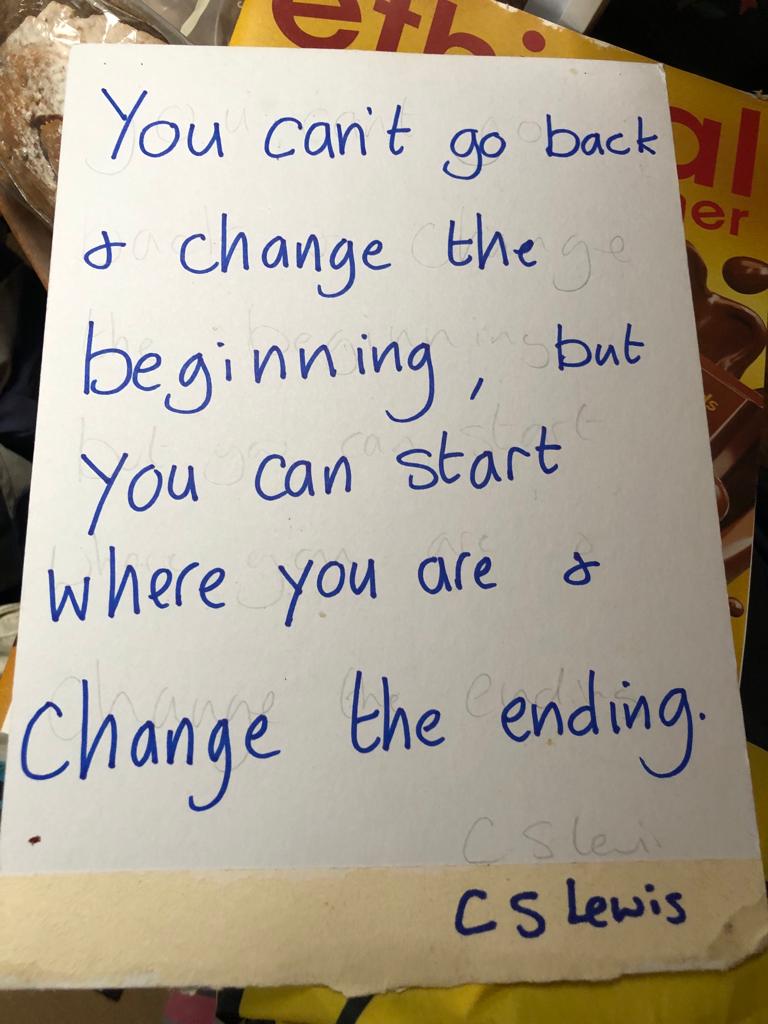 ethi
al
ner
You can't go back
& change the
beginning, but
you can start
where you are &
Change the ending.
C S Lewi
C S Lewis